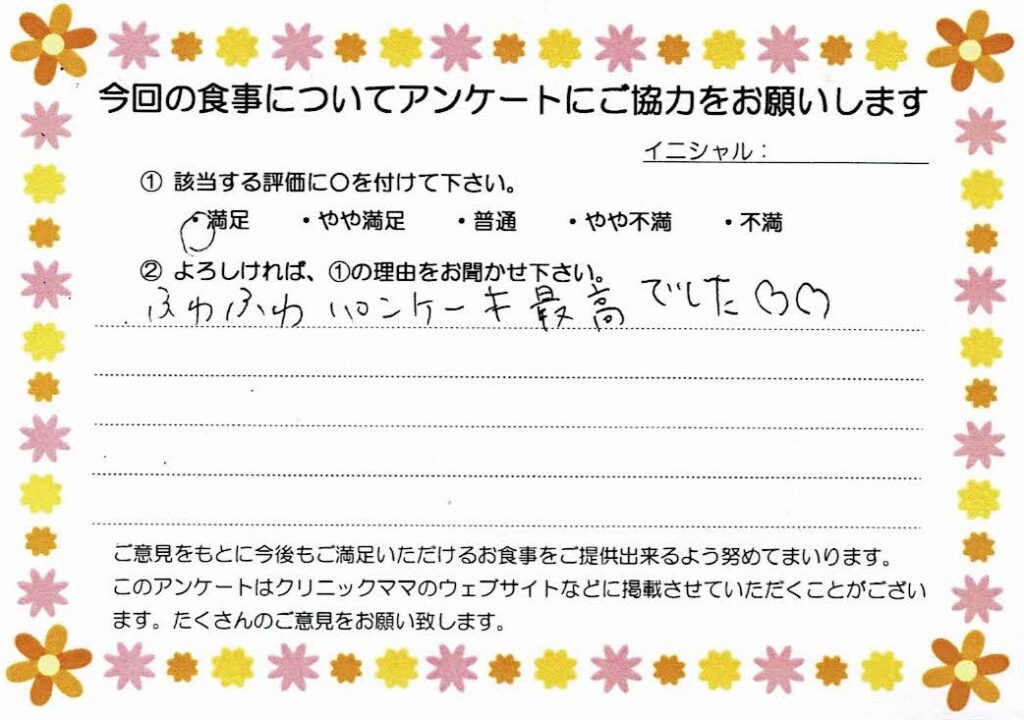 今回の食事についてアンケートにご協力をお願いします
イニシャル：
① 該当する評価に〇を付けて下さい。
・満足 ・やや満足 ・普通 ・やや不満 ・不満
② よろしければ、①の理由をお聞かせ下さい。
ふわふわパンケーキ最高でした♡♡
ご意見をもとに今後もご満足いただけるお食事をご提供出来るよう努めてまいります。
このアンケートはクリニックママのウェブサイトなどに掲載させていただくことがござい
ます。たくさんのご意見をお願い致します。